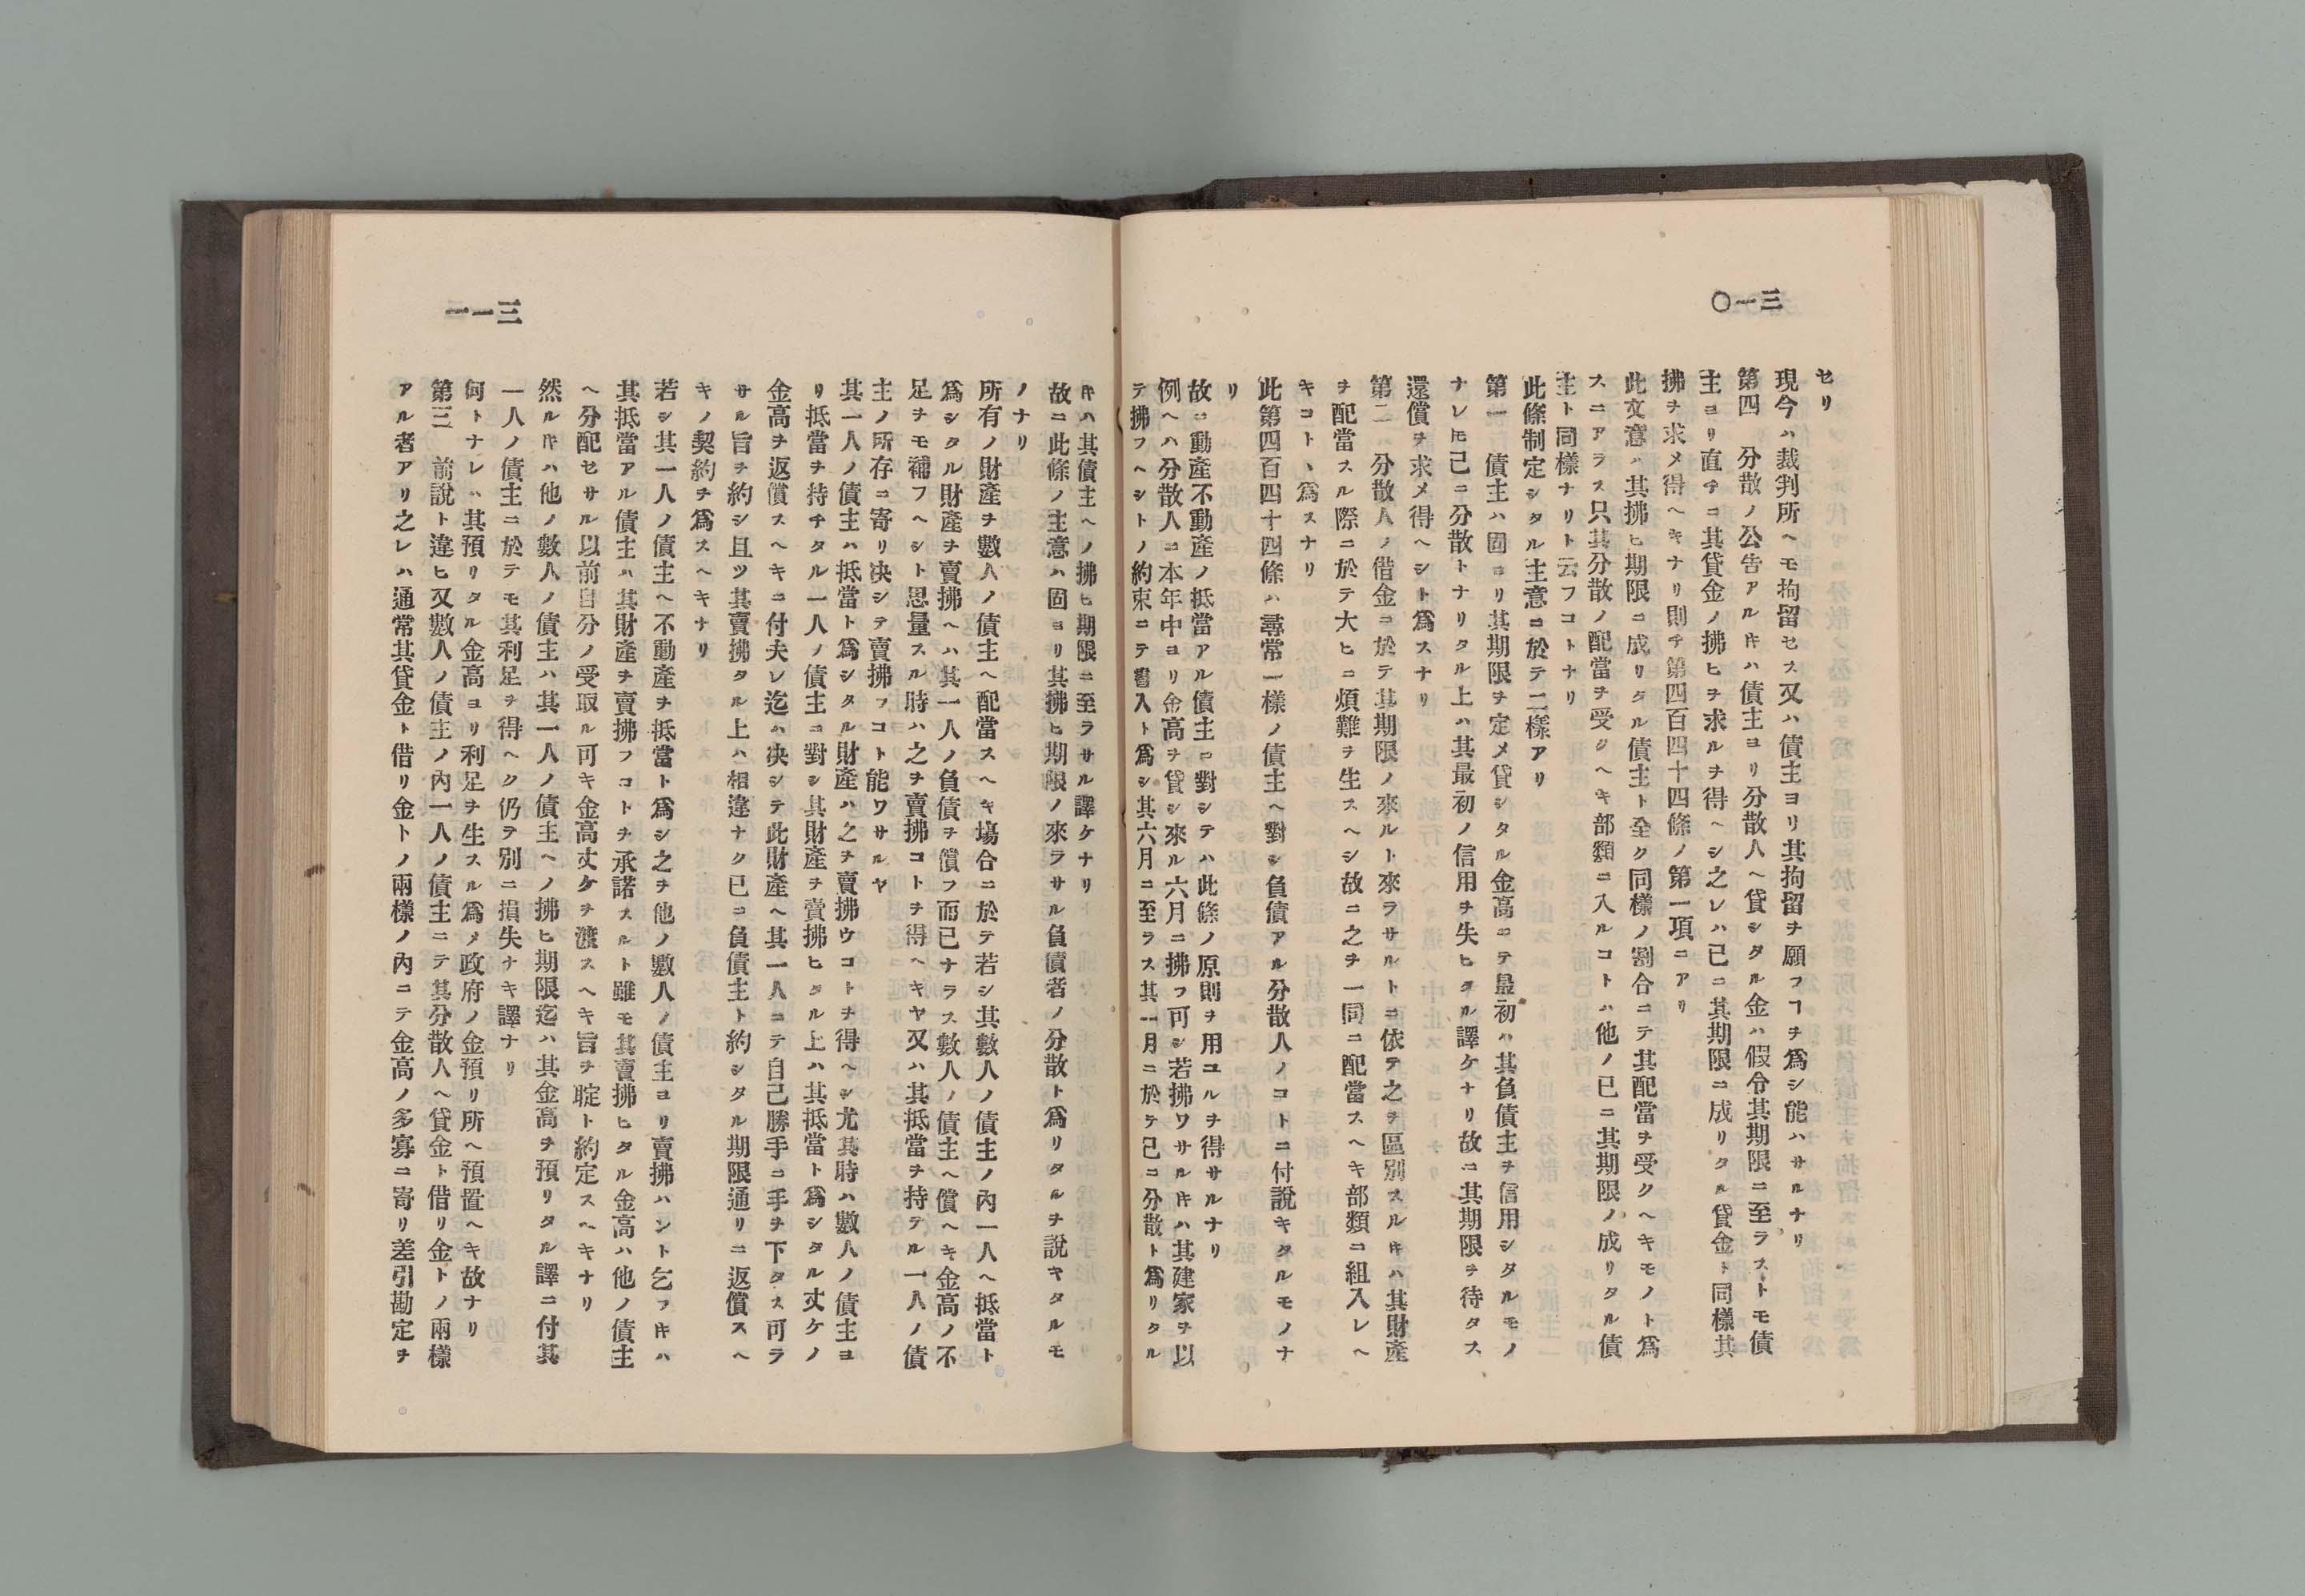 三一〇
セリ
現今ハ裁判所ヘモ拘留セス又ハ債主ヨリ其拘留ヲ願フヿヲ爲シ能ハサルナリ
第四　分散ノ公告アルキハ債主ヨリ分散人ヘ貸シタル金ハ假令其期限ニ至ラストモ債
主ヨリ直チニ其貸金ノ拂ヒヲ求ルヲ得ヘシ之レハ已ニ其期限ニ成リタル貸金ト同樣其
拂ヲ求メ得ヘキナリ則チ第四百四十四條ノ第一項ニアリ
此文意ハ其拂ヒ期限ニ成リタル債主ト全ク同樣ノ割合ニテ其配當ヲ受クヘキモノト爲
スニアラス只其分散ノ配當ヲ受クヘキ部類ニ入ルコトハ他ノ已ニ其期限ノ成リタル債
主ト同樣ナリト云フコトナリ
此條制定シタル主意ニ於テ二樣アリ
第一　債主ハ固ヨリ其期限ヲ定メ貸シタル金高ニテ最初ハ其負債主ヲ信用シタルモノ
ナレ𪜈已ニ分散トナリタル上ハ其最初ノ信用ヲ失ヒタル譯ケナリ故ニ其期限ヲ待タス
還償ヲ求メ得ヘシト爲スナリ
第二　分散人ノ借金ニ於テ其期限ノ來ルト來ラサルトニ依テ之ヲ區別スルキハ其財產
ヲ配當スル際ニ於テ大ヒニ煩難ヲ生スヘシ故ニ之ヲ一同ニ配當スヘキ部類ニ組入レヘ
キコトヽ爲スナリ
此第四百四十四條ハ尋常一樣ノ債主ヘ對シ負債アル分散人ノコトニ付說キタルモノナ
リ
故ニ動產不動產ノ抵當アル債主ニ對シテハ此條ノ原則ヲ用ユルヲ得サルナリ
例ヘハ分散人ニ本年中ヨリ金高ヲ貸シ來ル六月ニ拂フ可シ若拂ワサルキハ其建家ヲ以
テ拂フヘシトノ約束ニテ書入ト爲シ其六月ニ至ラス其一月ニ於テ已ニ分散ト爲リタル
三一一
キハ其債主ヘノ拂ヒ期限ニ至ラサル譯ケナリ
故ニ此條ノ主意ハ固ヨリ其拂ヒ期限ノ來ラサル負債者ノ分散ト爲リタルヲ說キタルモ
ノナリ
所有ノ財產ヲ數人ノ債主ヘ配當スヘキ塲合ニ於テ若シ其數人ノ債主ノ內一人ヘ抵當ト
爲シタル財產ヲ賣拂ヘハ其一人ノ負債ヲ償フ而已ナラス數人ノ債主ヘ償ヘキ金高ノ不
足ヲモ補フヘシト思量スル時ハ之ヲ賣拂コトヲ得ヘキヤ又ハ其抵當ヲ持テル一人ノ債
主ノ所存ニ寄リ决シテ賣拂フコト能ワサルヤ
其一人ノ債主ハ抵當ト爲シタル財產ハ之ヲ賣拂ウコトヲ得ヘシ尤其時ハ數人ノ債主ヨ
リ抵當ヲ持チタル一人ノ債主ニ對シ其財產ヲ賣拂ヒタル上ハ其抵當ト爲シタル丈ケノ
金高ヲ返償スヘキニ付夫レ迄ハ决シテ此財產ヘ其一人ニテ自己勝手ニ手ヲ下タス可ラ
サル旨ヲ約シ且ツ其賣拂タル上ハ相違ナク已ニ負債主ト約シタル期限通リニ返償スヘ
キノ契約ヲ爲スヘキナリ
若シ其一人ノ債主ヘ不動產ヲ抵當ト爲シ之ヲ他ノ數人ノ債主ヨリ賣拂ハント乞フキハ
其抵當アル債主ハ其財產ヲ賣拂フコトヲ承諾スルト雖モ其賣拂ヒタル金高ハ他ノ債主
ヘ分配セサル以前自分ノ受取ル可キ金高丈ケヲ渡スヘキ旨ヲ聢ト約定スヘキナリ
然ルキハ他ノ數人ノ債主ハ其一人ノ債主ヘノ拂ヒ期限迄ハ其金高ヲ預リタル譯ニ付其
一人ノ債主ニ於テモ其利足ヲ得ヘク仍ヲ別ニ損失ナキ譯ナリ
何トナレハ其預リタル金高ヨリ利足ヲ生スル爲メ政府ノ金預リ所ヘ預置ヘキ故ナリ
第三　前說ト違ヒ又數人ノ債主ノ內一人ノ債主ニテ其分散人ヘ貸金ト借リ金トノ兩樣
アル者アリ之レハ通常其貸金ト借リ金トノ兩樣ノ內ニテ金高ノ多寡ニ寄リ差引勘定ヲ